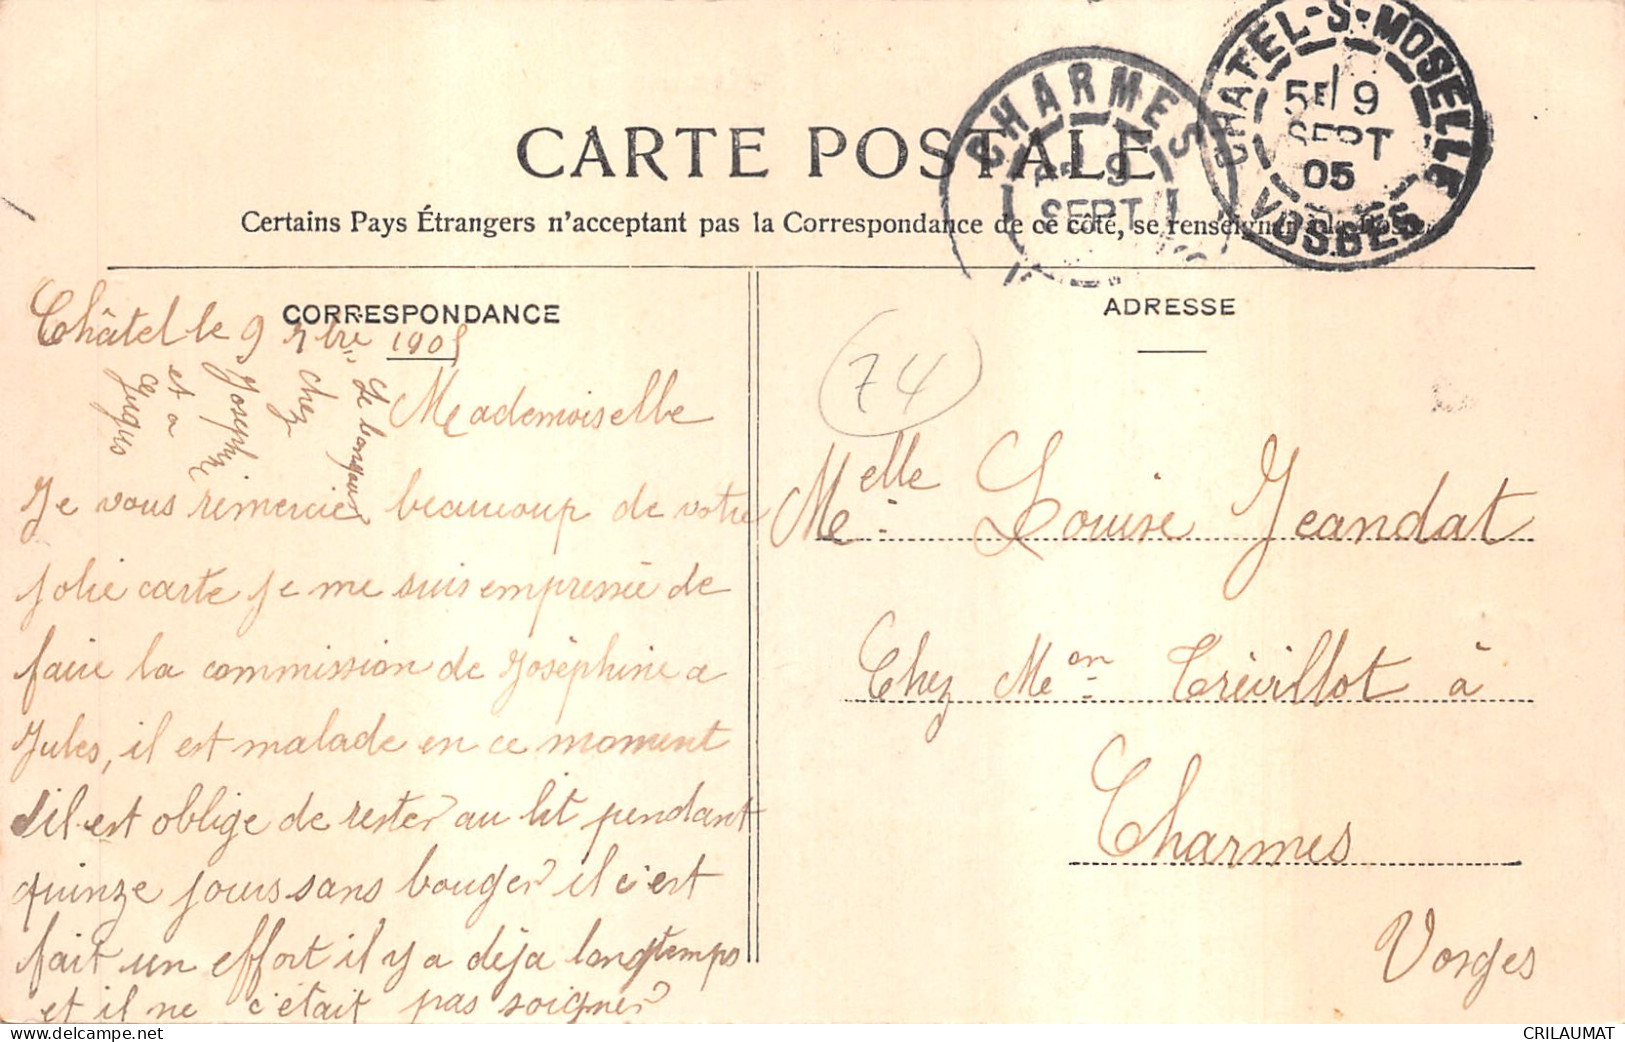 CARTE POSTALE
Certains Pays Étrangers n'acceptant pas la Correspondance de ce côté, se renseigner à la Poste
CHARMES
9
SEPT
CHATEL-S-MOSELLE
5E 9
SEPT
05
VOSGES
CORRESPONDANCE
Châtel le 9 7bre 1905
Le bonjour
chez
Joséphine
et a
ce Jugus
Mademoiselle
Je vous rimercier beaucoup de votre
jolie carte je me suis empressée de
faire la commission de Joséphine a
Jules, il est malade en ce moment
il est oblige de rester au lit pendant
quinze jours sans bouger il c'est
fait un effort il y a déja longtemps
et il ne c'était pas soigner
ADRESSE
74
Melle Louise Jeandat
Chez Meon Trévillot à
Charmes
Vosges
CRILAUMAT
delcampe.net